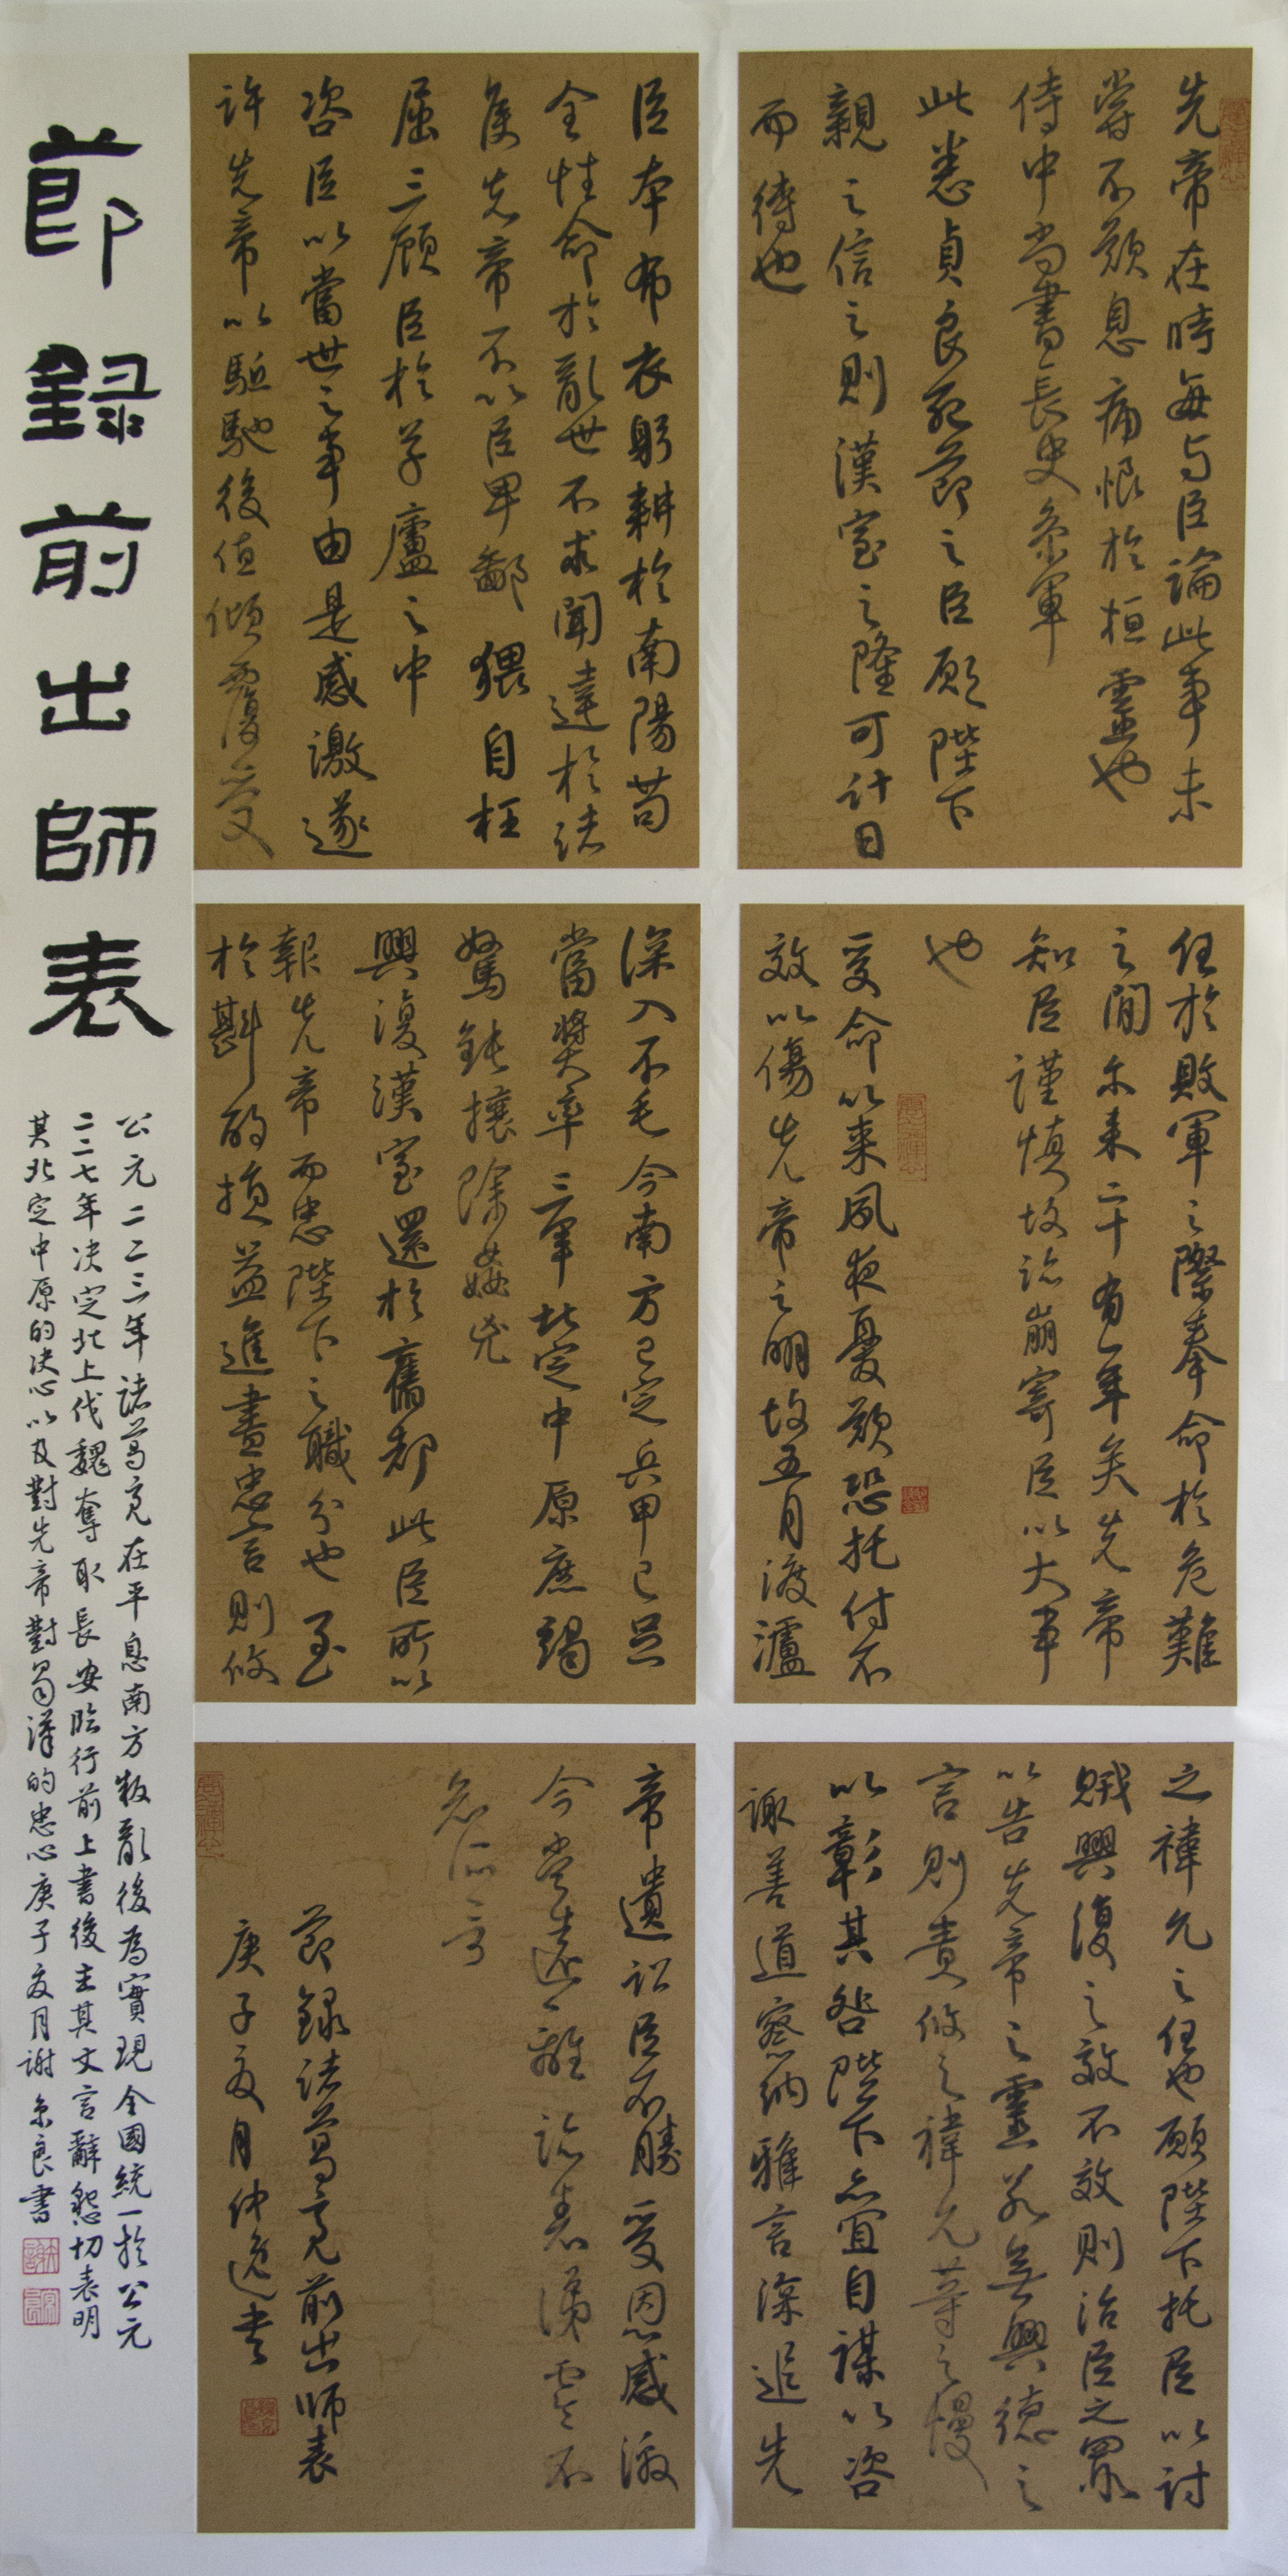 先帝在時每与臣論此事未
嘗不歎息痛恨於桓靈也
侍中尚書長史參軍
此悉貞良死節之臣願陛下
親之信之則漢室之隆可計日
而待也
臣本布衣躬耕於南陽苟
全性命於亂世不求聞達於諸
侯先帝不以臣卑鄙猥自枉
屈三顧臣於草廬之中
咨臣以當世之事由是感激遂
許先帝以驅馳後值傾覆受
任於敗軍之際奉命於危難
之間尔来二十有一年矣先帝
知臣謹慎故臨崩寄臣以大事
也
受命以来夙夜憂歎恐托付不
效以傷先帝之明故五月渡瀘
深入不毛今南方已定兵甲已足
當獎率三軍北定中原庶竭
駑鈍攘除姦兇
興復漢室還於舊都此臣所以
報先帝而忠陛下之職分也至
於斟酌損益進盡忠言則攸
之禕允之任也願陛下托臣以討
賊興復之效不效則治臣之罪
以告先帝之靈若無興德之
言則責攸之禕允等之慢
以彰其咎陛下亦宜自謀以咨
諏善道察納雅言深追先
帝遺詔臣不勝受恩感激
今當遠離臨表涕零不
知所言
節錄諸葛亮前出師表
庚子夏月仲逸书
節錄前出師表
公元二二三年諸葛亮在平息南方叛亂後為實現全國統一於公元
二二七年决定北上伐魏奪取長安臨行前上書後主其文言辭懇切表明
其北定中原的决心以及對先帝對蜀漢的忠心庚子夏月謝京良書